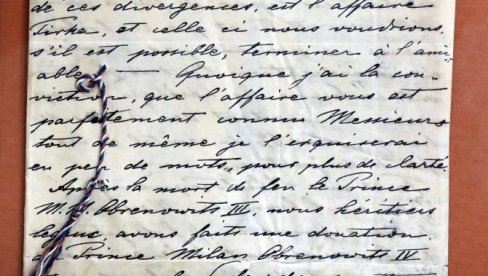 de ces divergences, est l'affaire
Tirka, et celle ci nous voudrions,
s'il est possible, terminer à l'ami-
able. — Quoique j'ai la con-
viction, que l'affaire vous est
parfaitement connue Messieurs
tout de même je l'esquiserai
en peu de mots, pour plus de clarté.
Après la mort de feu le Prince
M. Obrenowits III, nous héritiers
avons faits une donation
Prince Milan Obrenowits IV